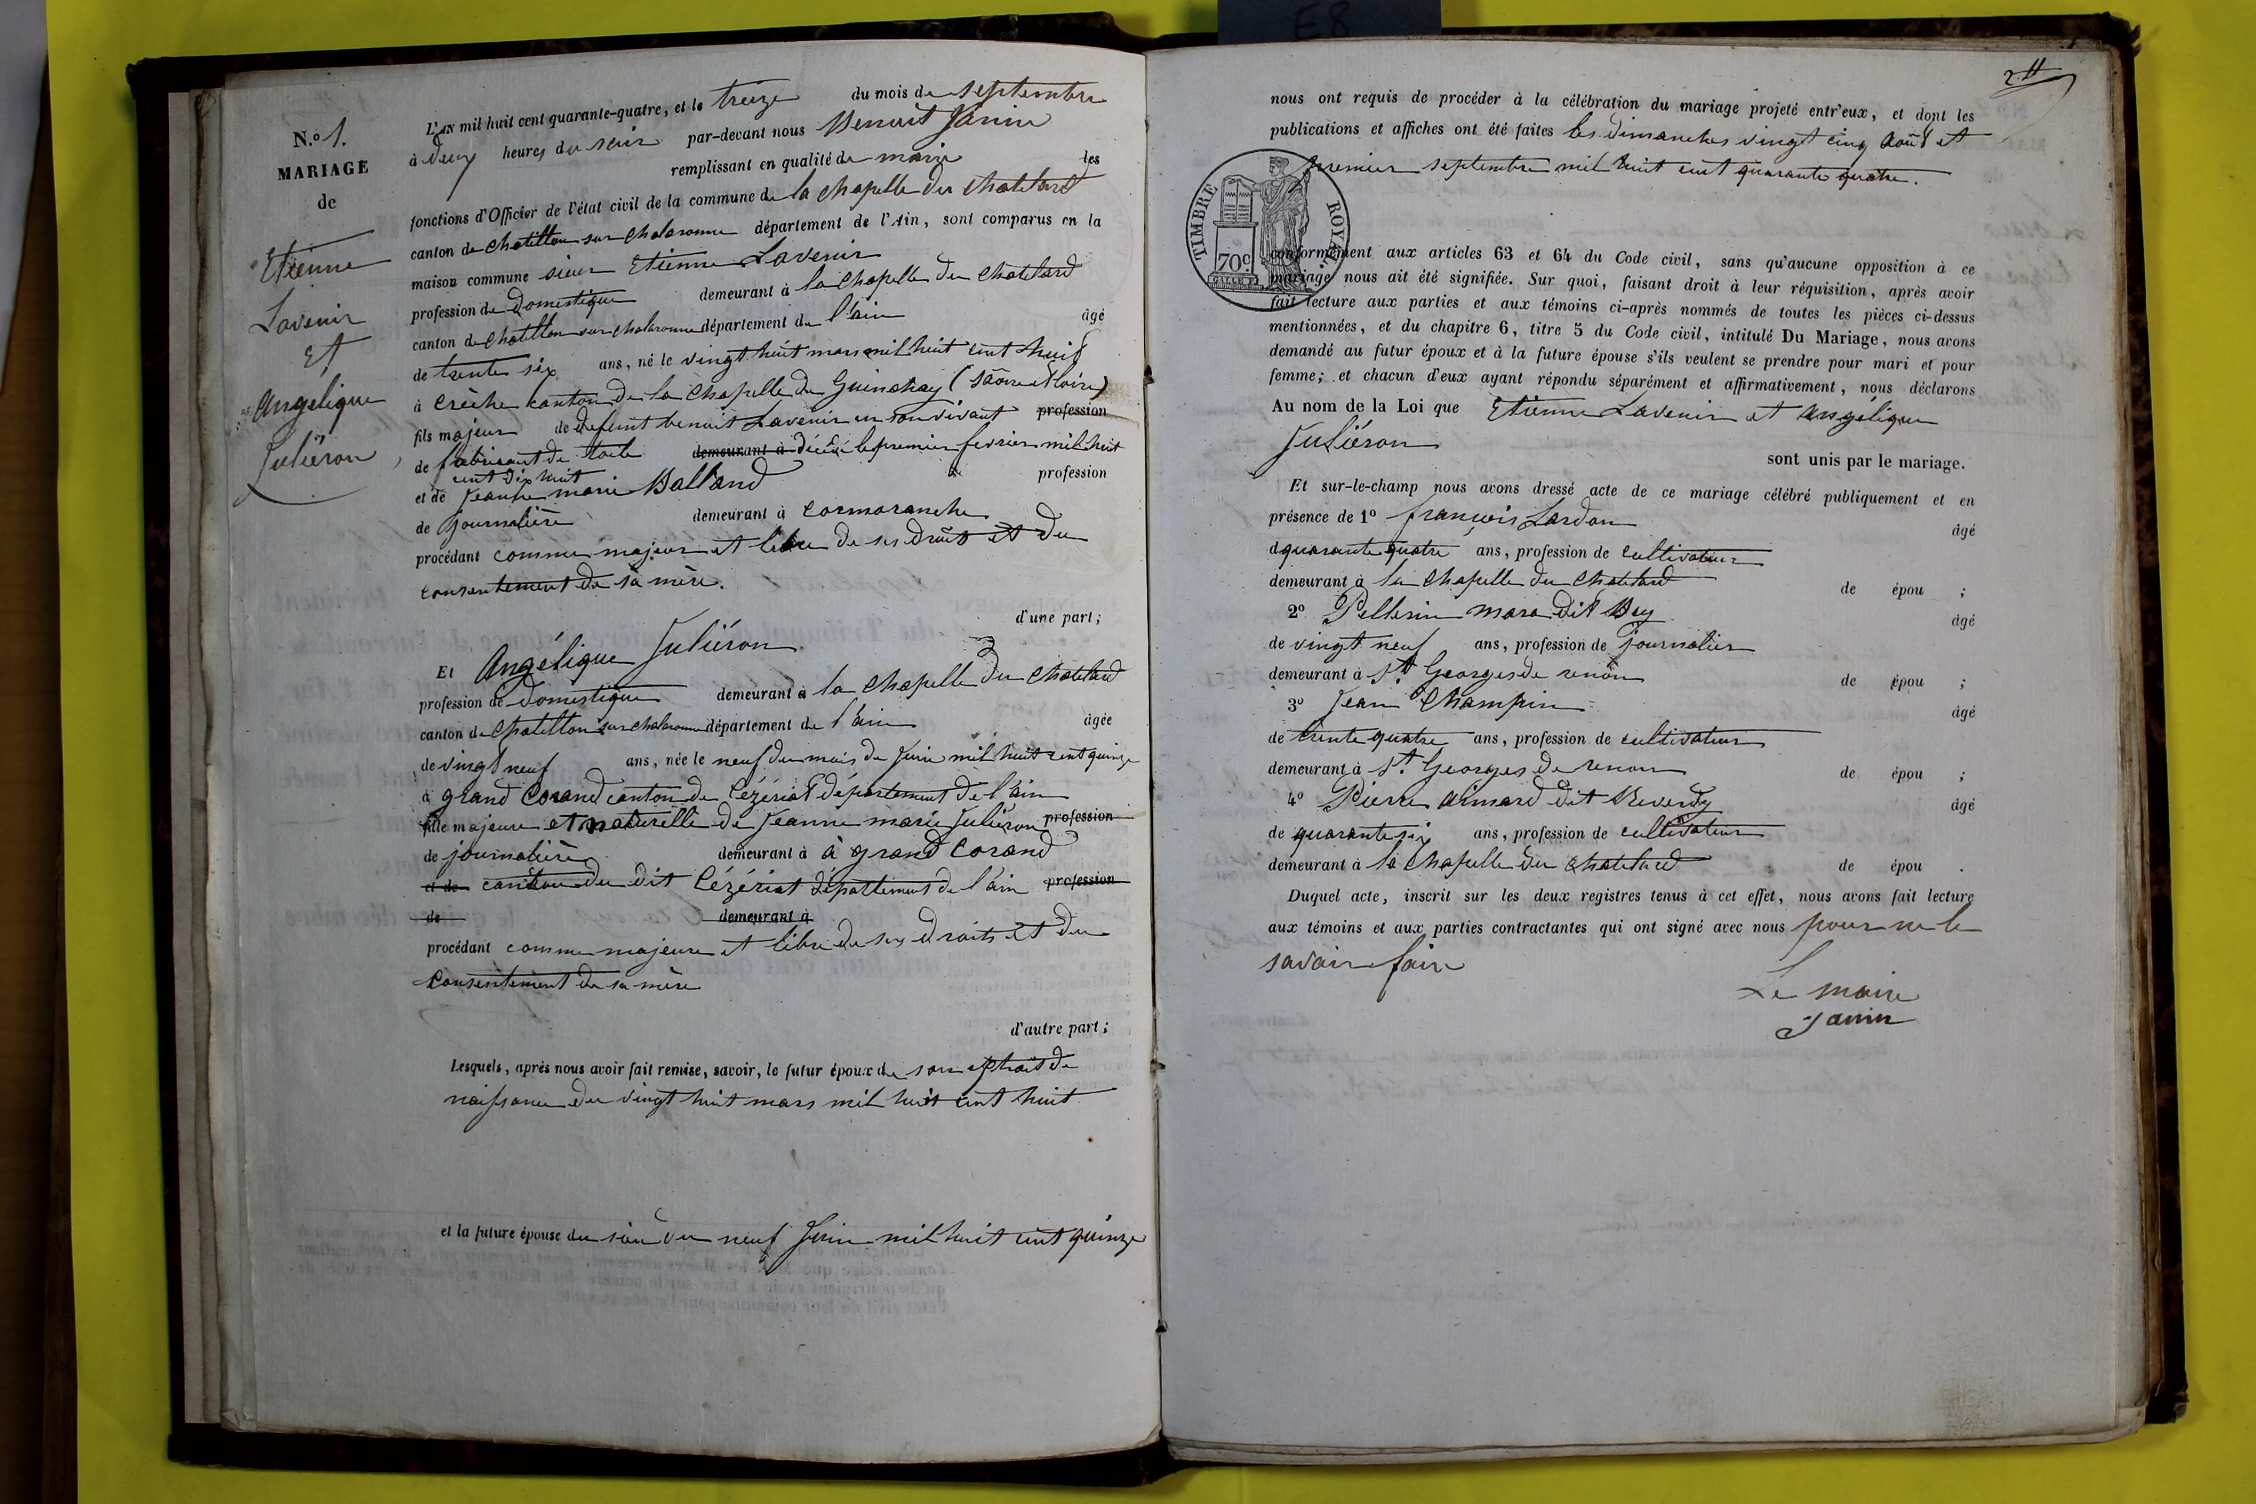 E8
N.o 1.
MARIAGE
de
Etienne
Lavenir
Et
Angélique
Juliéron
L'AN mil huit cent quarante-quatre, et le treize du mois de septembre
à deux heures du soir par-devant nous Benoit Janin
remplissant en qualité de maire les
fonctions d'Officier de l'état civil de la commune de la chapelle du chatelard
canton de chatillon sur chalaronne département de l'Ain, sont comparus en la
maison commune sieur Etienne Lavenir
profession de Domestique demeurant à la chapelle du chatelard
canton de chatillon sur chalaronne département de l'ain âgé
de trente six ans, né le vingt huit mars mil huit cent huit
à crèche canton de la chapelle de Guinchay (saône et loire)
fils majeur de defunt benoit Lavenir en son vivant profession
de fabricant de toile demeurant à décédé le premier fevrier mil huit
cent dix huit
et de Jeanne marie Balland profession
de journalière demeurant à cormoranche
procédant comme majeur et libre de ses droits et du
consentement de sa mère.
d'une part;
Et Angélique Juliéron
profession de Domestique demeurant à la chapelle du chatelard
canton de chatillon sur chalaronne département de l'ain âgée
de vingt neuf ans, née le neuf du mois de Juin mil huit cent quinze
à grand Corand canton de Cézériat département de l'ain
fille majeure et naturelle de Jeanne marie Juliéron profession
de journalière demeurant à à grand Corand
et de canton du dit Cézériat département de l'ain profession
de demeurant à
procédant comme majeure et libre de ses droits et du
consentement de sa mère
d'autre part;
Lesquels, après nous avoir fait remise, savoir, le futur époux de son extrait de
naissance du vingt huit mars mil huit cent huit
et la future épouse du sien du neuf Juin mil huit cent quinze
2
nous ont requis de procéder à la célébration du mariage projeté entr'eux, et dont les
publications et affiches ont été faites les dimanches vingt cinq Août et
premier septembre mil huit cent quarante quatre.
TIMBRE ROYAL
70c
conformément aux articles 63 et 64 du Code civil, sans qu'aucune opposition à ce
mariage nous ait été signifiée. Sur quoi, faisant droit à leur réquisition, après avoir
fait lecture aux parties et aux témoins ci-après nommés de toutes les pièces ci-dessus
mentionnées, et du chapitre 6, titre 5 du Code civil, intitulé Du Mariage, nous avons
demandé au futur époux et à la future épouse s'ils veulent se prendre pour mari et pour
femme; et chacun d'eux ayant répondu séparément et affirmativement, nous déclarons
Au nom de la Loi que Etienne Lavenir et Angélique
Juliéron
sont unis par le mariage.
Et sur-le-champ nous avons dressé acte de ce mariage célébré publiquement et en
présence de 1o françois Lardon âgé
d quarante quatre ans, profession de cultivateur
demeurant à la chapelle du chatelard de épou ;
2o Pellerin mara dit Bey âgé
de vingt neuf ans, profession de journalier
demeurant à St Georges de renon de épou ;
3o Jean Champin âgé
de trente quatre ans, profession de cultivateur
demeurant à St Georges de renon de épou ;
4o Pierre aimard dit Reverdy âgé
de quarante six ans, profession de cultivateur
demeurant à la chapelle du chatelard de épou .
Duquel acte, inscrit sur les deux registres tenus à cet effet, nous avons fait lecture
aux témoins et aux parties contractantes qui ont signé avec nous pour ne le
savoir faire
Le maire
Janin